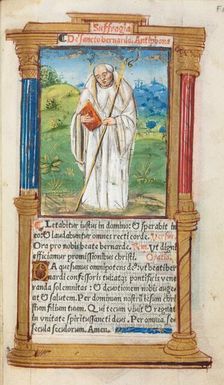 Suffragia
De sancto bernardo. Antiphona
Letabitur iustus in domino: & sperabit in
eo: & laudabuntur omnes recti corde. Versus
Ora pro nobis beate bernarde. ut digni
efficiamur promissionibus christi. Oratio.
Da quesumus omnipotens deus: ut beati ber
nardi confessoris tui atque pontificis vene
randa solemnitas: & devotionem nobis auge
at & salutem. Per dominum nostrum iesum chri
stum filium tuum. Qui tecum vivit & regnat
in unitate spiritussancti deus. Per omnia
secula seculorum. Amen.